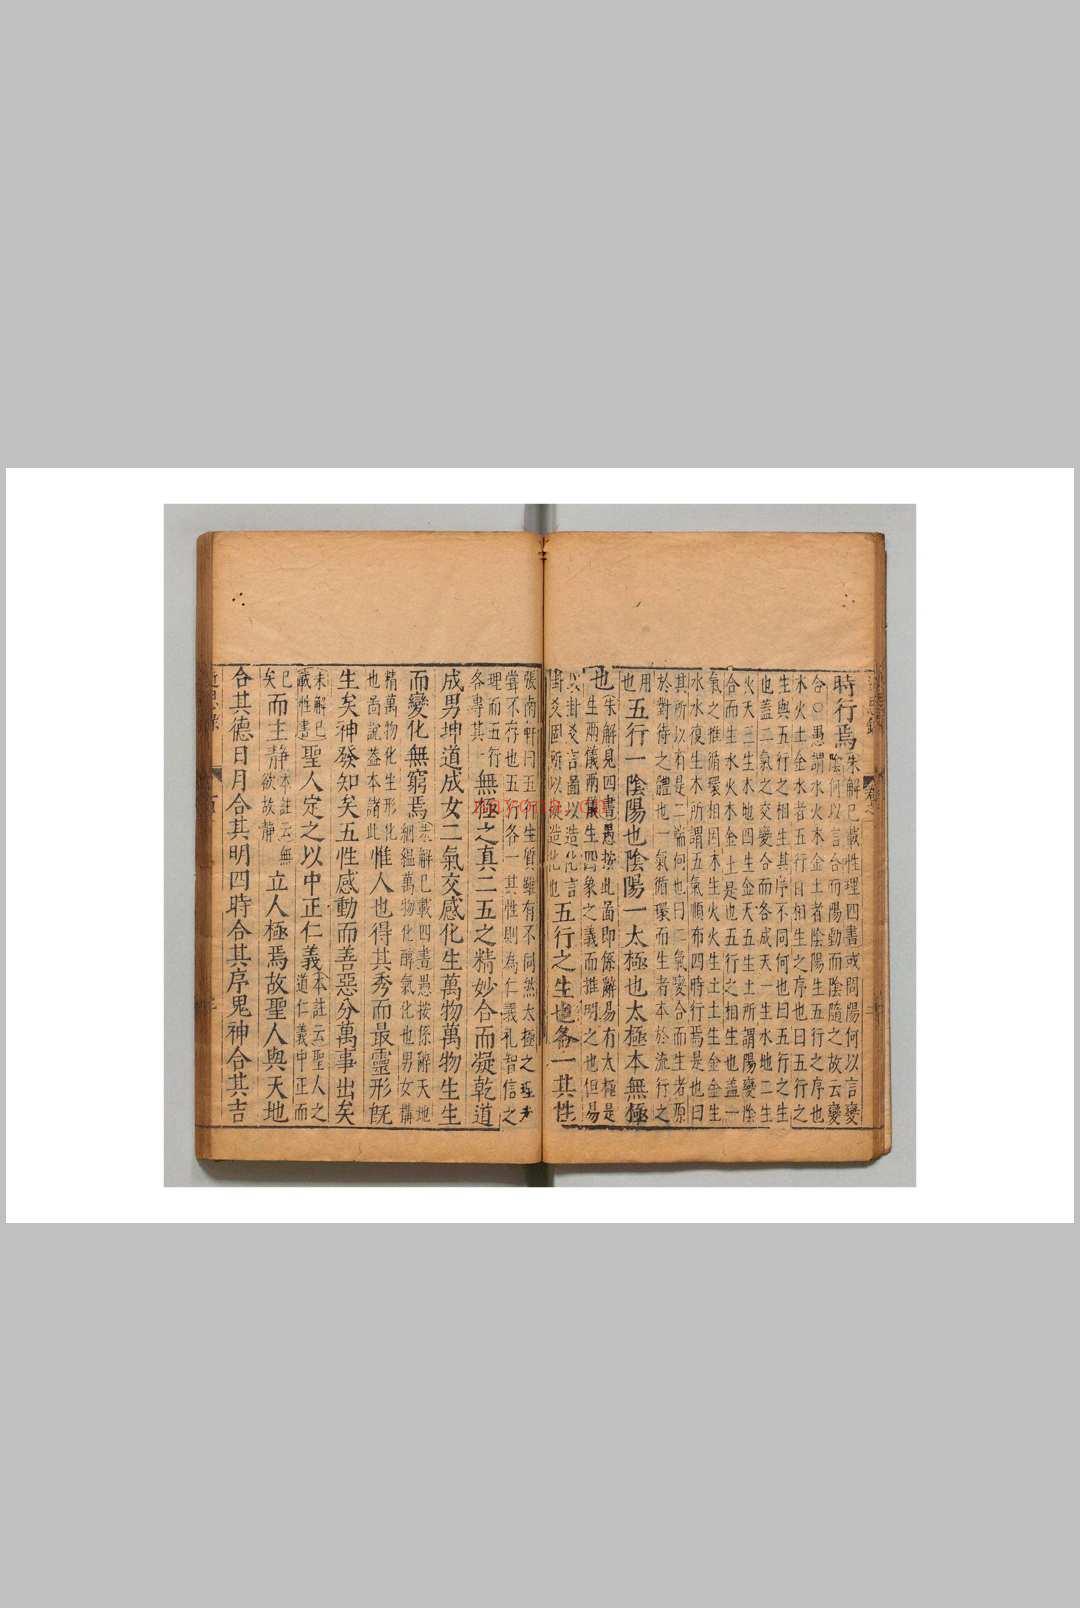 時行焉朱解已載性理四書或問陽何以言變
陰何以言合而陽動而陰隨之故云變
合○愚謂水火木金土者陰陽生五行之序也
木火土金水者五行自相生之序也曰五行之
生與五行之相生其序不同何也曰五行之生
也蓋二氣之交變合而各成天一生水地二生
火天三生木地四生金天五生土所謂陽變陰
合而生水火木金土是也五行之相生也蓋一
氣之推循環相因木生火火生土土生金金生
水水復生木所謂五氣順布四時行焉是也曰
其所以有是二端何也曰二氣變合而生者原
於對待之體也一氣循環而生者本於流行之
用
也五行一陰陽也陰陽一太極也太極本無極
也朱解見四書愚按此啚即係辭易有太極是
生兩儀兩儀生四象之義而推明之也但易
以卦爻言啚以造化言
卦爻固所以擬造化也五行之生也各一其性
張南軒曰五行生質雖有不同然太極之理未
嘗不存也五行各一其性則為仁義礼智信之
理而五行
各專其一無極之真二五之精妙合而凝乾道
成男坤道成女二氣交感化生萬物萬物生生
而變化無窮焉朱解已載四書愚按係辭天地
絪縕萬物化醇氣化也男女構
精萬物化生形化
也啚說蓋本諸此惟人也得其秀而最靈形既
生矣神發知矣五性感動而善惡分萬事出矣
朱解已
載性書聖人定之以中正仁義本註云聖人之
道仁義中正而
已
矣而主靜本註云無
欲故靜立人極焉故聖人與天地
合其德日月合其明四時合其序鬼神合其吉